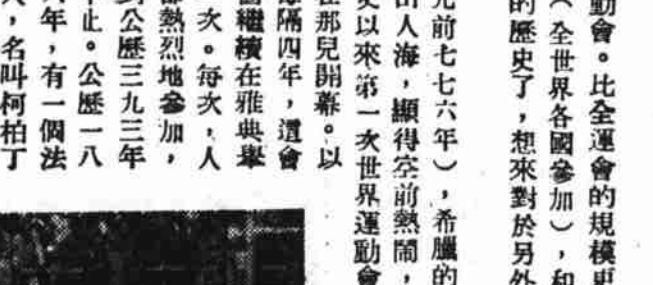 動會。比全運會的規模更
（全世界各國參加），和
的歷史了，想來對於另外
元前七七六年），希臘的
山人海，顯得空前熱鬧，
史以來第一次世界運動會
在那兒開幕。以
隔四年，這會
舊繼續在雅典舉
次。每次，人
都熱烈地參加，
到公歷三九三年
止。公歷一八
年，有一個法
人，名叫柯柏丁